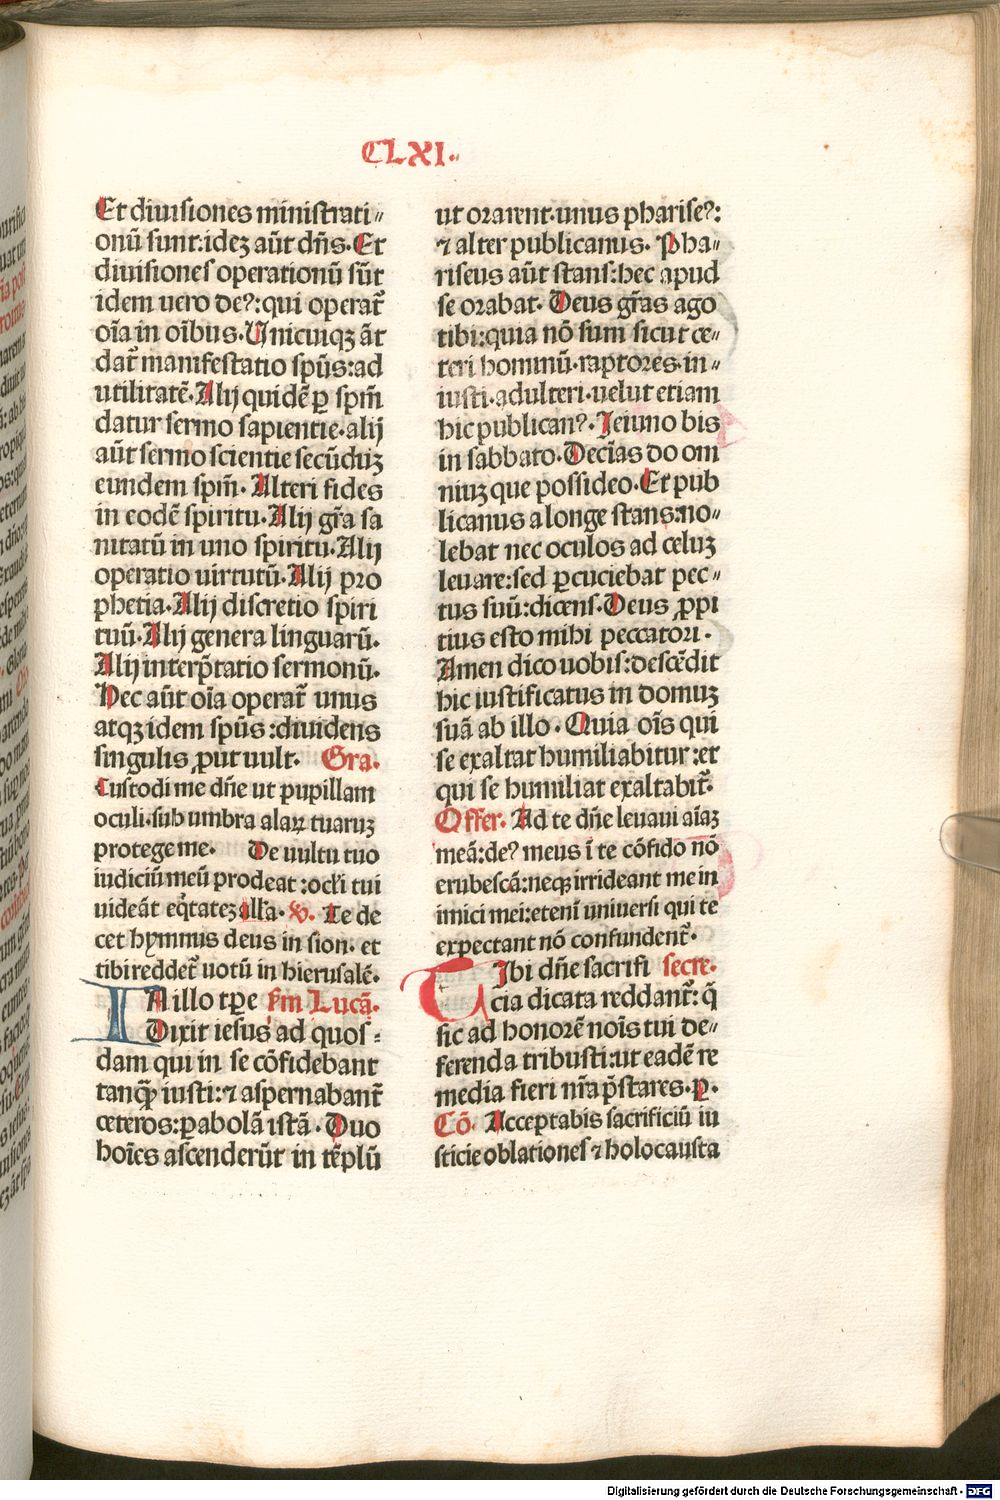 CLXI.
Et diuisiones ministrati⸗
onū sunt:idez aūt dn̄s. Et
diuisiones operationū sūt
idem uero deꝰ:qui operat̄
oīa in oībus. Vnicuiqz āt
dat̄ manifestatio spūs:ad
utilitatē. Alij quidē ꝑ spm̄
datur sermo sapientie.alij
aūt sermo scientie secūduz
eundem spm̄. Alteri fides
in eodē spiritu. Alij gr̄a sa
nitatū in uno spiritu. Alij
operatio uirtutū. Alij pro
phetia. Alij discretio spiri
tuū. Alij genera linguarū.
Alij interp̄tatio sermonū.
Hec aūt oīa operat̄ unus
atqz idem spūs :diuidens
singulis ꝓut uult. Gra.
Custodi me dn̄e ut pupillam
oculi.sub umbra alaꝝ tuaruz
protege me. De uultu tuo
iudiciū meū prodeat :ocl̄i tui
uideāt eq̄tatez all̄a. v̄. Te de
cet hymnus deus in sion. et
tibi reddet̄ uotū in hierusalē.
IN illo tp̄e sm̄ Lucā.
Dixit iesus ad quos⸗
dam qui in se cōfidebant
tanqꝫ iusti:⁊ aspernabant̄
ceteros:ꝑabolā istā. Duo
hoīes ascenderūt in tēplū
ut orarent.unus phariseꝰ:
⁊ alter publicanus. Pha⸗
riseus aūt stans:hec apud
se orabat. Deus gr̄as ago
tibi:quia nō sum sicut ce⸗
teri hominū.raptores.in⸗
iusti.adulteri.uelut etiam
hic publicanꝰ. Ieiuno bis
in sabbato. Decīas do om
niuz que possideo. Et pub
licanus a longe stans:no⸗
lebat nec oculos ad celuz
leuare:sed ꝑcuciebat pec⸗
tus suū:dicens. Deus ꝓpi
tius esto mihi peccatori.
Amen dico uobis:descēdit
hic iustificatus in domuz
suā ab illo. Quia oīs qui
se exaltat humiliabitur:et
qui se humiliat exaltabit̄.
Offer. Ad te dn̄e leuaui aīaz
meā:deꝰ meus ī te cōfido nō
erubescā:neqꝫ irrideant me in
imici mei:etenī uniuersi qui te
expectant nō confundent̄.
Tibi dn̄e sacrifi secre.
cia dicata reddant̄: q̄
sic ad honorē noīs tui de⸗
ferenda tribuisti:ut eadē re
media fieri nr̄a p̄stares. ꝑ.
Cō. Acceptabis sacrificiū iu
sticie oblationes ⁊ holocausta
Digitalisierung gefördert durch die Deutsche Forschungsgemeinschaft - DFG